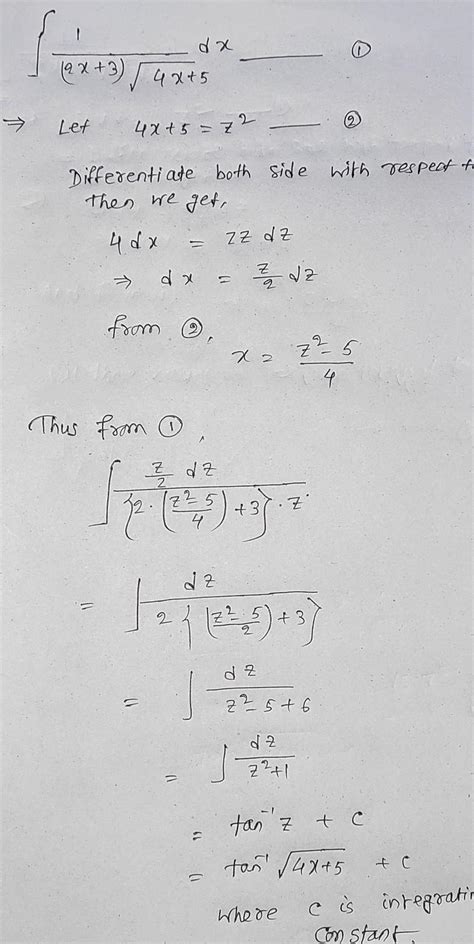 ∫ 1/((2x+3)√(4x+5)) dx ——— ①
⇒ Let 4x+5 = z² —— ②
Differentiate both side with respect t
then we get,
4 dx = 2z dz
⇒ dx = z/2 dz
from ②,
x = (z²-5)/4
Thus from ①,
∫ (z/2 dz)/({2·((z²-5)/4)+3}·z)
= ∫ dz/(2{((z²-5)/2)+3})
= ∫ dz/(z²-5+6)
= ∫ dz/(z²+1)
= tan⁻¹ z + c
= tan⁻¹ √(4x+5) + c
where c is integratin
constant.